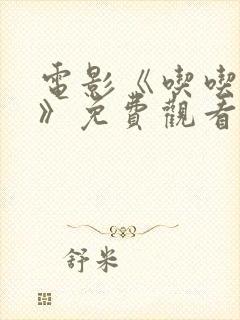 電影《喫喫
》免費觀看
舒米